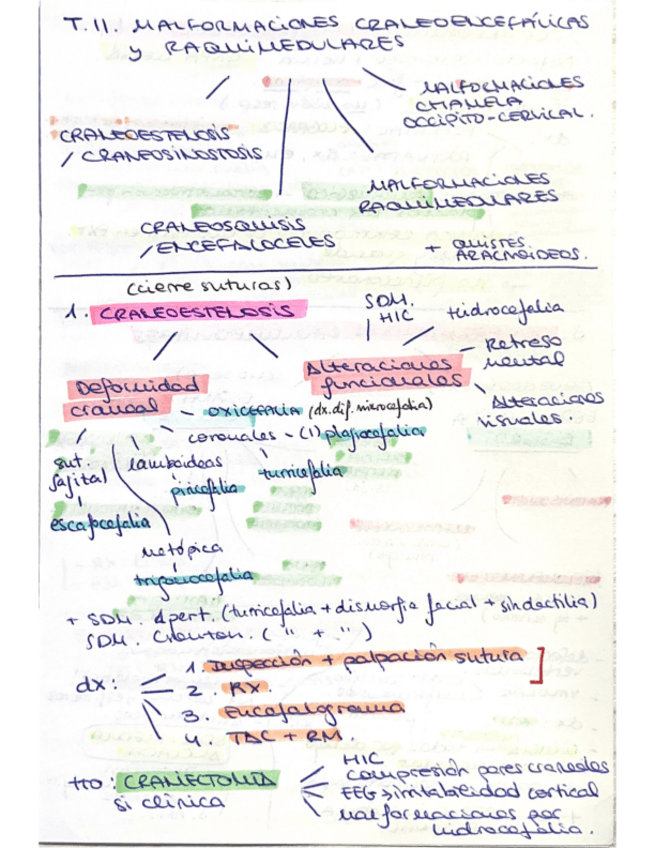 T.11. MALFORMACIONES CRANEOENCEFÁLICAS
y RAQUIMEDULARES
MALFORMACIONES
CHARNELA
OCCIPITO-CERVICAL.
CRANEOESTENOSIS
/ CRANEOSINOSTOSIS
MALFORMACIONES
RAQUIMEDULARES
CRANEOSQUISIS
/ENCEFALOCELES
+ QUISTES
ARACNOIDEOS.
(cierre suturas)
1. CRANEOESTENOSIS
SDM.
HIC
Hidrocefalia
Retraso
mental
Alteraciones
visuales.
Alteraciones
funcionales
Deformidad
craneal
- OXICEFALIA (dx.dif. microcefalia)
coronales - (1) plagiocefalia
turricefalia
sut.
sagital
escafocefalia
lambdoideas
metópica
trigonocefalia
+ SDM. Apert. (turricefalia + dismorfia facial + sindactilia)
SDM. Crouzon. ( " + " )
dx:
1. Inspección + palpación sutura
2. RX.
3. Encefalograma
4. TAC + RM.
tto: CRANIECTOMIA
si clínica
HIC
compresión pares craneales
EEG irritabilidad cortical
malformaciones por
hidrocefalia.